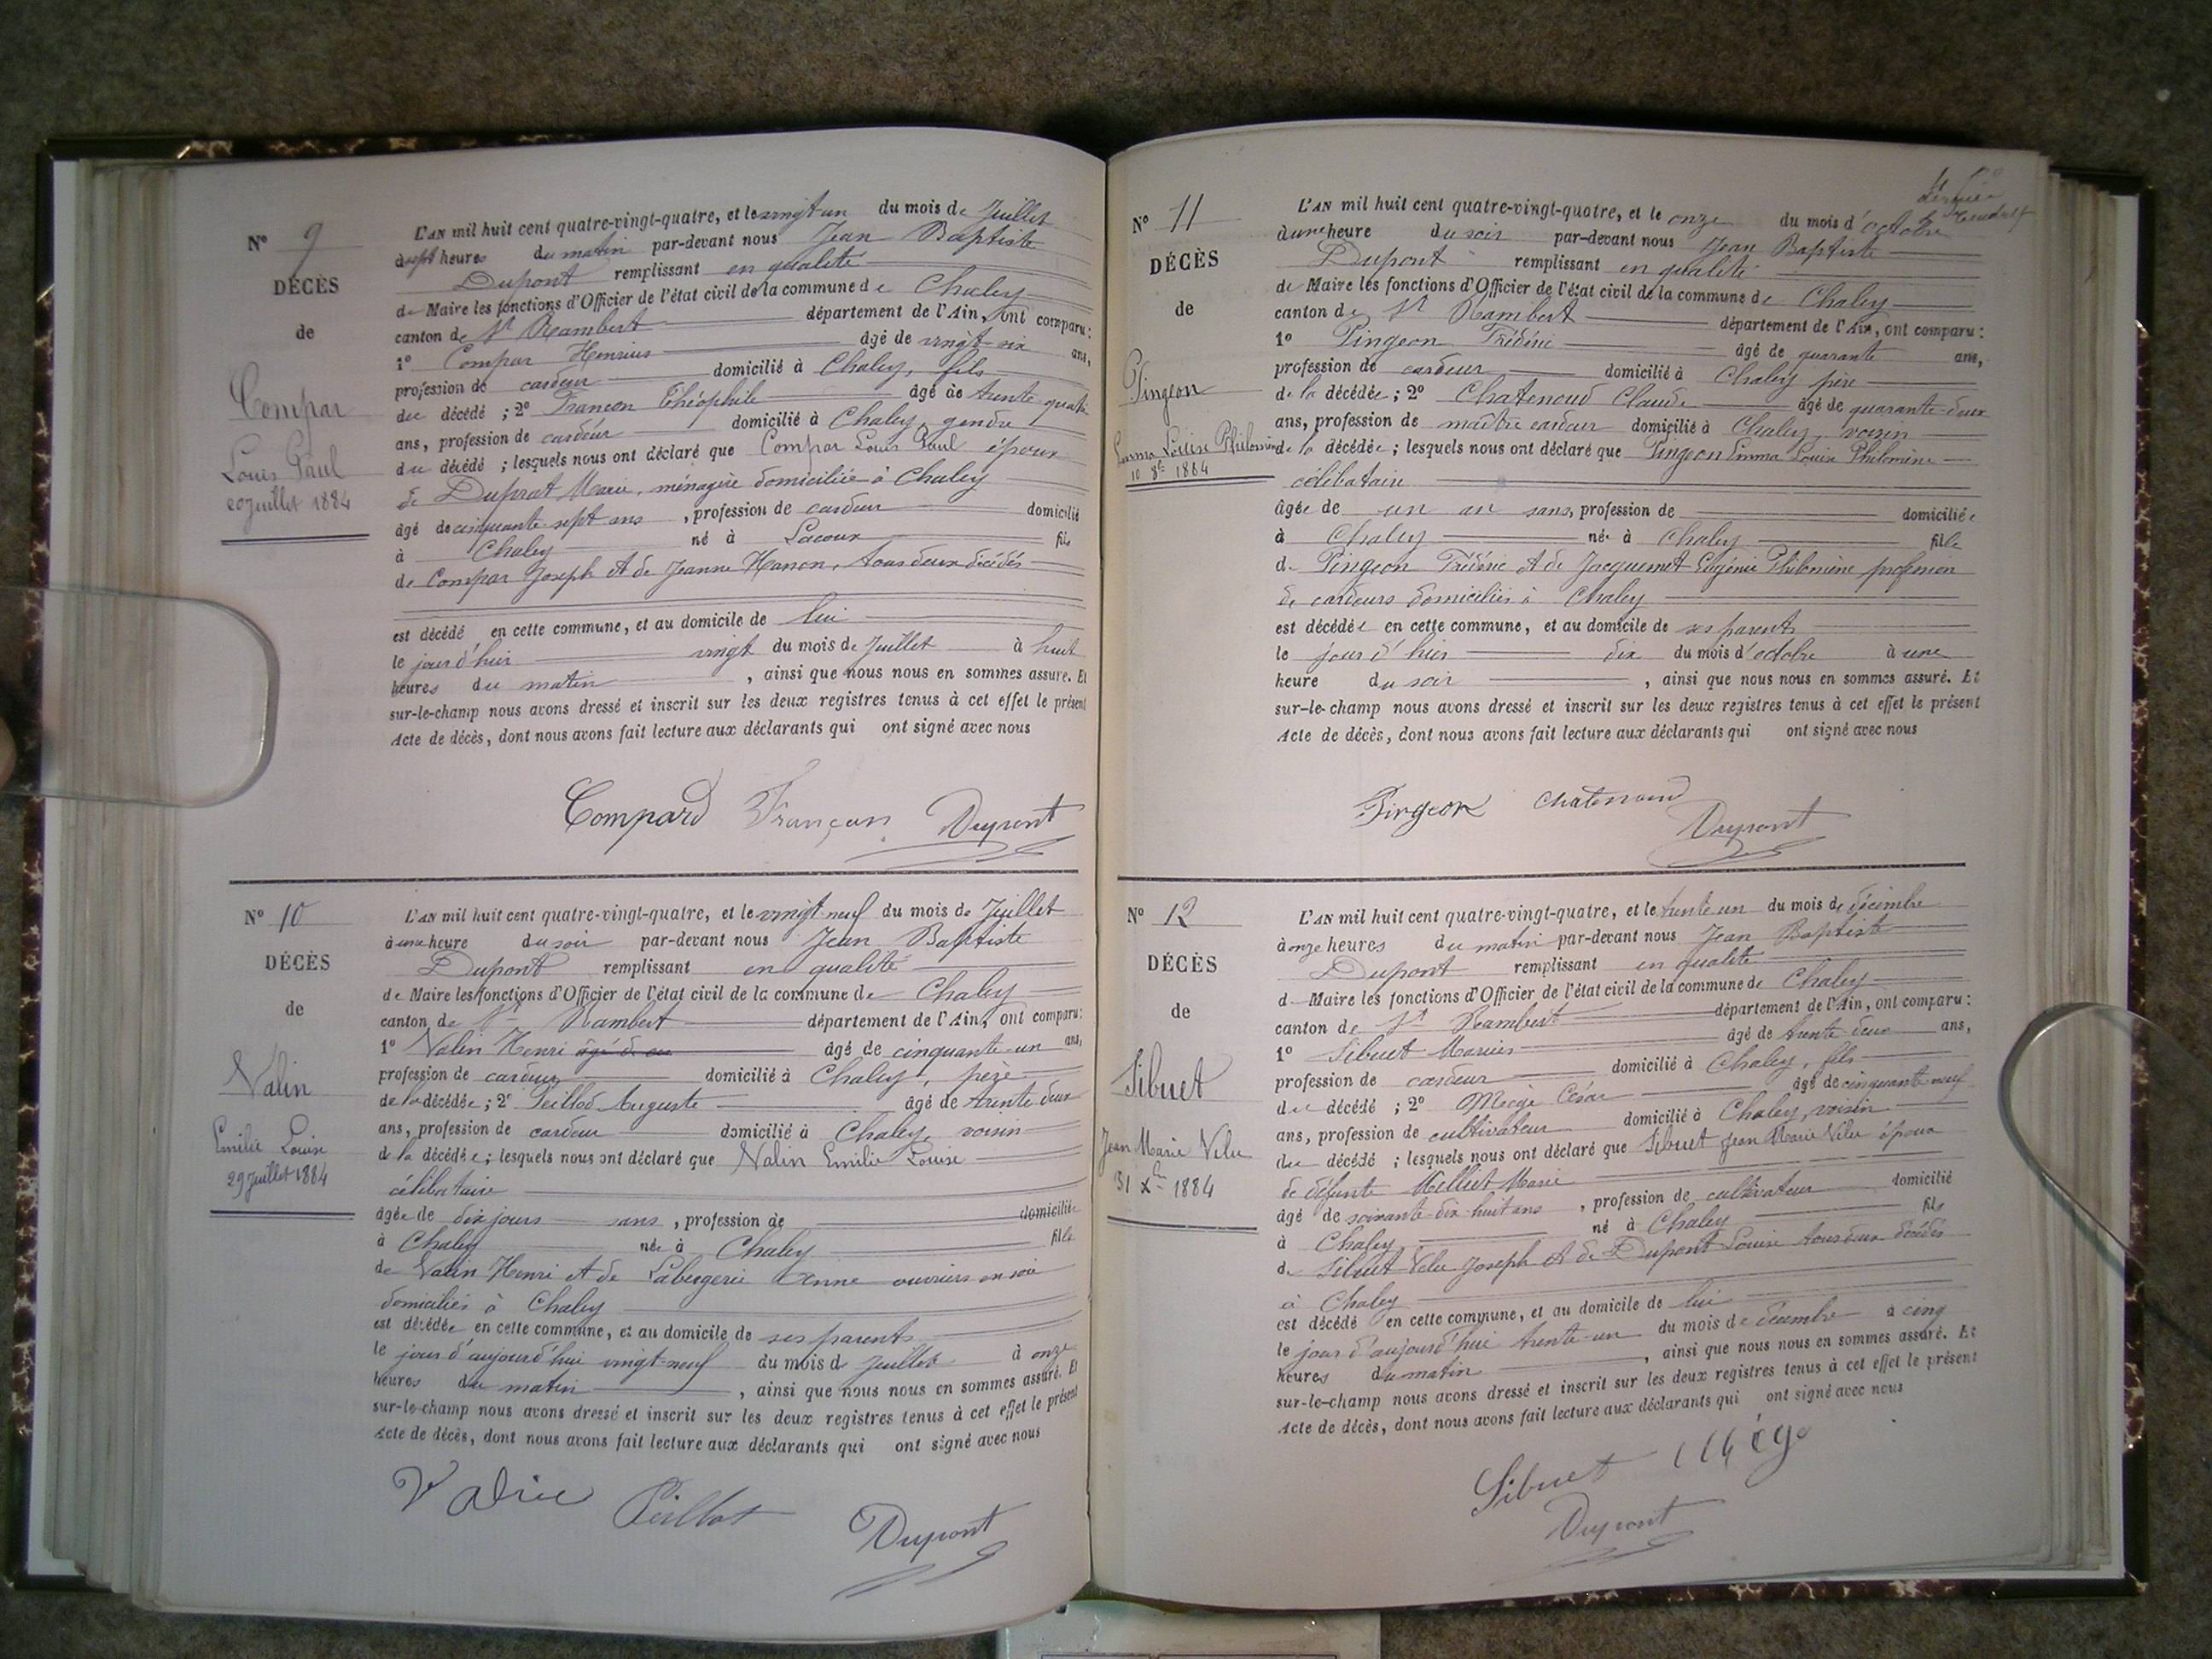 N° 9
DÉCÈS
de
Compar
Louis Paul
20 juillet 1884
L'AN mil huit cent quatre-vingt-quatre, et le vingt-un du mois de Juillet
à sept heures du matin par-devant nous Jean Baptiste
Dupont remplissant en qualité
de Maire les fonctions d'Officier de l'état civil de la commune de Chaley
canton de St Rambert département de l'Ain, ont comparu :
1° Compar Henrius âgé de vingt-six ans,
profession de cardeur domicilié à Chaley, fils
du décédé ; 2° Françon Théophile âgé de trente quatre
ans, profession de cardeur domicilié à Chaley, gendre
du décédé ; lesquels nous ont déclaré que Compar Louis Paul époux
de Duprat Marie, ménagère domiciliée à Chaley
âgé de cinquante-sept ans, profession de cardeur domicilié
à Chaley né à Lacoux fils
de Compar Joseph et de Jeanne Hanon, tous deux décédés
est décédé en cette commune, et au domicile de lui
le jour d'hier vingt du mois de Juillet à huit
heures du matin, ainsi que nous nous en sommes assuré. Et
sur-le-champ nous avons dressé et inscrit sur les deux registres tenus à cet effet le présent
Acte de décès, dont nous avons fait lecture aux déclarants qui ont signé avec nous
Compard Françon Dupont
N° 10
DÉCÈS
de
Valin
Emilie Louise
29 juillet 1884
L'AN mil huit cent quatre-vingt-quatre, et le vingt-neuf du mois de Juillet
à une heure du soir par-devant nous Jean Baptiste
Dupont remplissant en qualité
de Maire les fonctions d'Officier de l'état civil de la commune de Chaley
canton de St Rambert département de l'Ain, ont comparu :
1° Valin Henri âgé de cinquante-un ans,
profession de cardeur domicilié à Chaley, père
de la décédée ; 2° Peillod Auguste âgé de trente deux
ans, profession de cardeur domicilié à Chaley, voisin
de la décédée ; lesquels nous ont déclaré que Valin Emilie Louise
célibataire
âgée de dix jours sans, profession de domiciliée
à Chaley née à Chaley fille
de Valin Henri et de Labergerie Anne ouvriers en soie
domiciliés à Chaley
est décédée en cette commune, et au domicile de ses parents
le jour d'aujourd'hui vingt-neuf du mois de Juillet à onze
heures du matin, ainsi que nous nous en sommes assuré. Et
sur-le-champ nous avons dressé et inscrit sur les deux registres tenus à cet effet le présent
Acte de décès, dont nous avons fait lecture aux déclarants qui ont signé avec nous
Valin Peillot Dupont
N° 11
DÉCÈS
de
Pingeon
Emma Louise Philomène
10 8bre 1884
L'AN mil huit cent quatre-vingt-quatre, et le onze du mois d'octobre
à une heure du soir par-devant nous Jean Baptiste
Dupont remplissant en qualité
de Maire les fonctions d'Officier de l'état civil de la commune de Chaley
canton de St Rambert département de l'Ain, ont comparu :
1° Pingeon Frédéric âgé de quarante ans,
profession de cardeur domicilié à Chaley père
de la décédée ; 2° Chatenoud Claude âgé de quarante-deux
ans, profession de maître cardeur domicilié à Chaley, voisin
de la décédée ; lesquels nous ont déclaré que Pingeon Emma Louise Philomène
célibataire
âgée de un an sans, profession de domiciliée
à Chaley née à Chaley fille
de Pingeon Frédéric et de Jacquemet Eugénie Philomène profession
de cardeurs domiciliés à Chaley
est décédée en cette commune, et au domicile de ses parents
le jour d'hier dix du mois d'octobre à une
heure du soir, ainsi que nous nous en sommes assuré. Et
sur-le-champ nous avons dressé et inscrit sur les deux registres tenus à cet effet le présent
Acte de décès, dont nous avons fait lecture aux déclarants qui ont signé avec nous
Pingeon Chatenoud
Dupont
N° 12
DÉCÈS
de
Sibuet
Jean Marie Velu
31 Xbre 1884
L'AN mil huit cent quatre-vingt-quatre, et le trente un du mois de décembre
à onze heures du matin par-devant nous Jean Baptiste
Dupont remplissant en qualité
de Maire les fonctions d'Officier de l'état civil de la commune de Chaley
canton de St Rambert département de l'Ain, ont comparu :
1° Sibuet Marius âgé de trente-deux ans,
profession de cardeur domicilié à Chaley, fils
du décédé ; 2° Miège César âgé de cinquante neuf
ans, profession de cultivateur domicilié à Chaley, voisin
du décédé ; lesquels nous ont déclaré que Sibuet Jean Marie Velu époux
de défunte Milliet Marie
âgé de soixante-dix-huit ans, profession de cultivateur domicilié
à Chaley né à Chaley fils
de Sibuet Velu Joseph et de Dupont Louise tous deux décédés
à Chaley
est décédé en cette commune, et au domicile de lui
le jour d'aujourd'hui trente-un du mois de décembre à cinq
heures du matin, ainsi que nous nous en sommes assuré. Et
sur-le-champ nous avons dressé et inscrit sur les deux registres tenus à cet effet le présent
Acte de décès, dont nous avons fait lecture aux déclarants qui ont signé avec nous
Sibuet Miége
Dupont